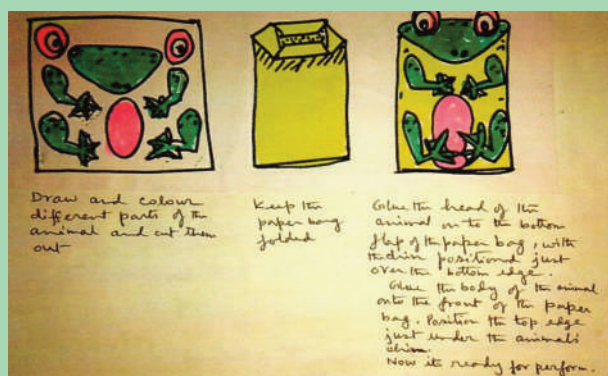 Draw and colour
different parts of the
animal and cut them
out
Keep the
paper bag
folded
Glue the head of the
animal on to the bottom
flap of the paper bag, with
the chin positioned just
over the bottom edge.
Glue the body of the animal
onto the front of the paper
bag. Position the top edge
just under the animals
chin.
Now its ready for perform.